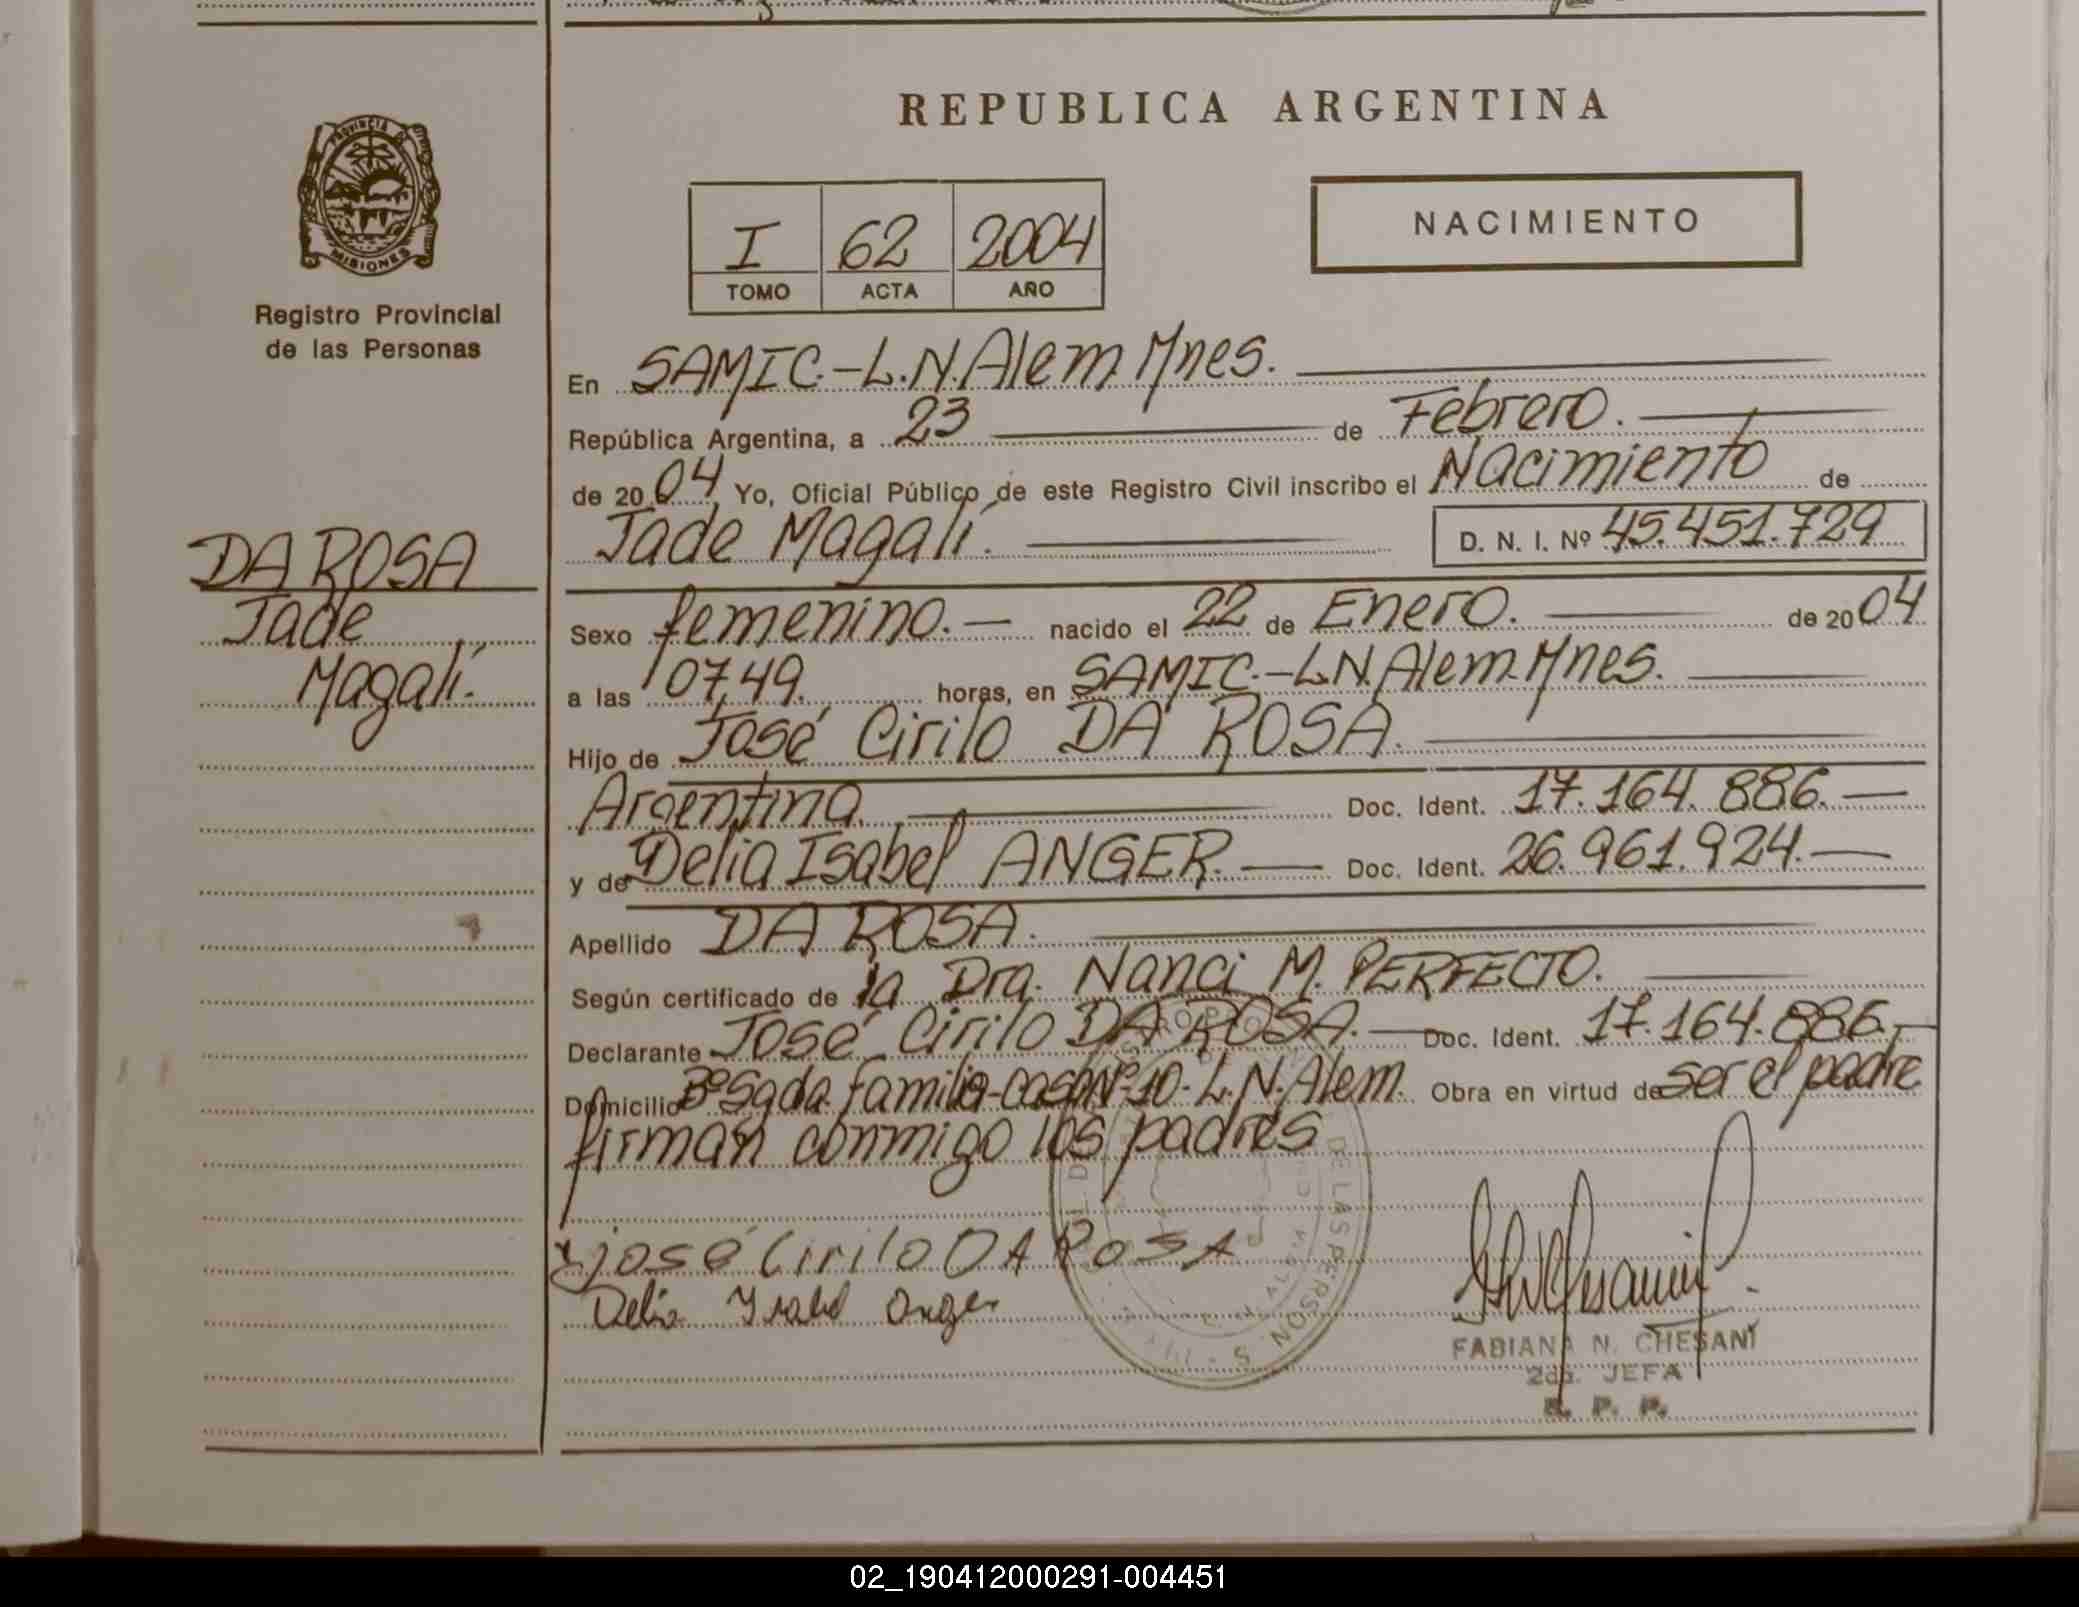 PROVINCIA DE
MISIONES
Registro Provincial
de las Personas
DA ROSA
Jade
Magalí.
REPUBLICA ARGENTINA
NACIMIENTO
I 62 2004
TOMO ACTA AÑO
En SAMIC.-L.N.Alem Mnes.
República Argentina, a 23 de Febrero.
de 2004 Yo, Oficial Público de este Registro Civil inscribo el Nacimiento de
Jade Magalí. D. N. I. Nº 45.451.729
Sexo femenino.- nacido el 22 de Enero. de 2004
a las 07,49. horas, en SAMIC.-L.N.Alem.Mnes.
Hijo de José Cirilo DA ROSA.
Argentina. Doc. Ident. 17.164.886.-
y de Delia Isabel ANGER.- Doc. Ident. 26.961.924.-
Apellido DA ROSA.
Según certificado de la Dra. Nanci M. PERFECTO.
Declarante José Cirilo DA ROSA.- Doc. Ident. 17.164.886.-
Domicilio Bº Sgda. familia-casa Nº 10-L.N.Alem. Obra en virtud de ser el padre
firman conmigo los padres
José Cirilo DA ROSA
Delia Ysabel Anger
DE LAS PERSONAS
FABIANA N. CHESANI
2da. JEFA
R. P. P.
02_190412000291-004451